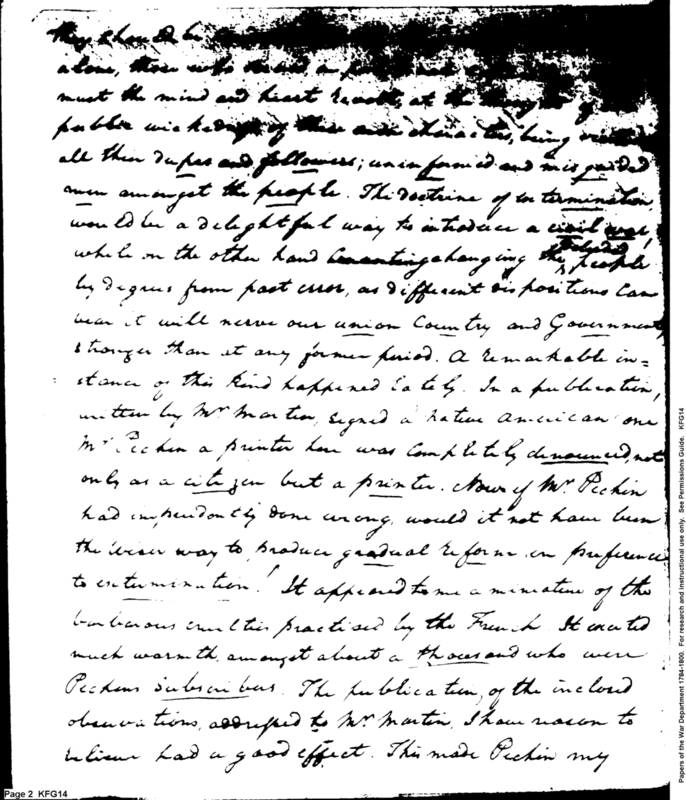 They should be
alone, those who
must the mind and heart revolt, at the thought of
public wickedness of these characters, being
all their dupes and followers; uninformed and misguided
men amongst the people. The doctrine of extermination
would be a delightful way to introduce a civil war!
while on the other hand changing the deluded people
by degrees from past error, as different dispositions can
bear it will nerve our union Country and Government,
stronger than at any former period. A remarkable in=
stance of this kind happened lately. In a publication,
written by Mr Martin, signed a native American one
Mr Pechin a printer here was completely denounced, not
only as a citizen but a printer. Now if Mr. Pechin
had imprudently done wrong, would it not have been
the wiser way to produce gradual reform in preference
to extermination! It appeared to me a miniature of the
barbarous cruelties practised by the French. It excited
much warmth amongst about a thousand who were
Pechins Subscribers. The publication, of the inclosed
observations, addressed to Mr Martin, I have reason to
believe had a good effect. This made Pechin my
Page 2 KFG14
Papers of the War Department 1784-1800. For research and instructional use only. See Permissions Guide. KFG14